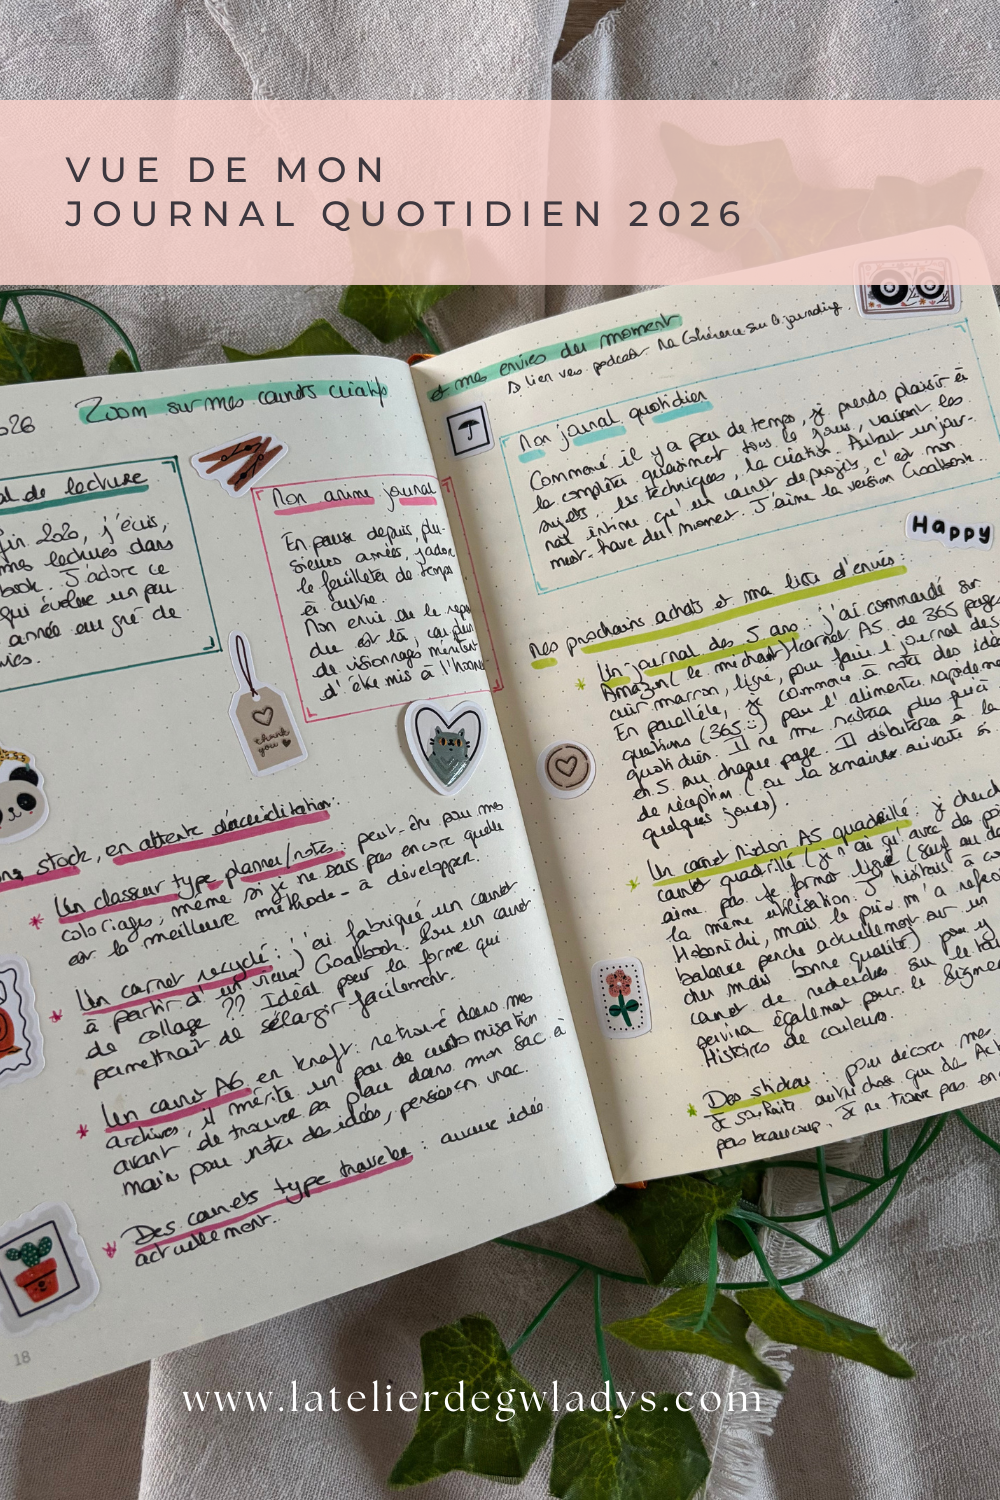 VUE DE MON
JOURNAL QUOTIDIEN 2026
Zoom sur mes carnets créatifs
al de lecture
fin 2020, j'écris,
mes lectures dans
book. J'adore ce
qui évolue un peu
année au gré de
Mon anime journal
En pause depuis plu-
sieurs années, j'adore
le feuilleter de temps
à autre.
Mon envie de le repren
dre est là, car plein
de visionnages méritent
d'être mis à l'honneur
thank
you
stock, en attente d'accréditation:
Un classeur type planner/notes : peut-être pour mes
coloriages, même si je ne sais pas encore quelle
est la meilleure méthode à développer.
Un carnet recyclé : j'ai fabriqué un carnet
à partir d'un vieux Goalbook. Pour un carnet
de collage ?? Idéal pour la forme qui
permettrait de s'élargir facilement.
Un carnet A6 en kraft : retrouvé dans mes
archives, il mérite un peu de customisation
avant de trouver sa place dans mon sac à
main pour noter des idées, pensées en vrac.
Des carnets type traveler : aucune idée
actuellement.
18
et mes envies du moment
lien vers podcast Ma Cohérence sur le journaling.
Mon journal quotidien
Commencé il y a peu de temps, je prends plaisir à
le compléter quasiment tous les jours, variant les
sujets, les techniques, la création. Autant un jour-
nal intime qu'un carnet de projets, c'est mon
must-have du moment. J'aime la version Goalbook.
Happy
Mes prochains achats et ma liste d'envies :
Un journal des 5 ans : j'ai commandé sur
Amazon (le méchant) 1 carnet A5 de 365 pages
cuir marron, ligné, pour faire 1 journal des
En parallèle, je commence à noter des idées
questions (365 :)) pour l'alimenter rapidement
quotidien. Il ne me restera plus qu'à
en 5 ans chaque page. Il débutera à la
de réception (ou la semaine suivante si
quelques jours).
Un carnet A5 quadrillé : je cherche
carnet quadrillé (je n'ai qu'avec des po
aime pas le format ligné (sauf au
la même utilisation. J'hésitais à
Hobonichi, mais le prix m'a refroi
balance penche actuellement sur un
cher mais bonne qualité) pour y
carnet de recherches sur le
servira également pour le
Histoires de couleurs.
Des stickers : pour décorer mes
Je souhaite autre chose que de
pas beaucoup. Je ne trouve pas
www.latelierdegwladys.com